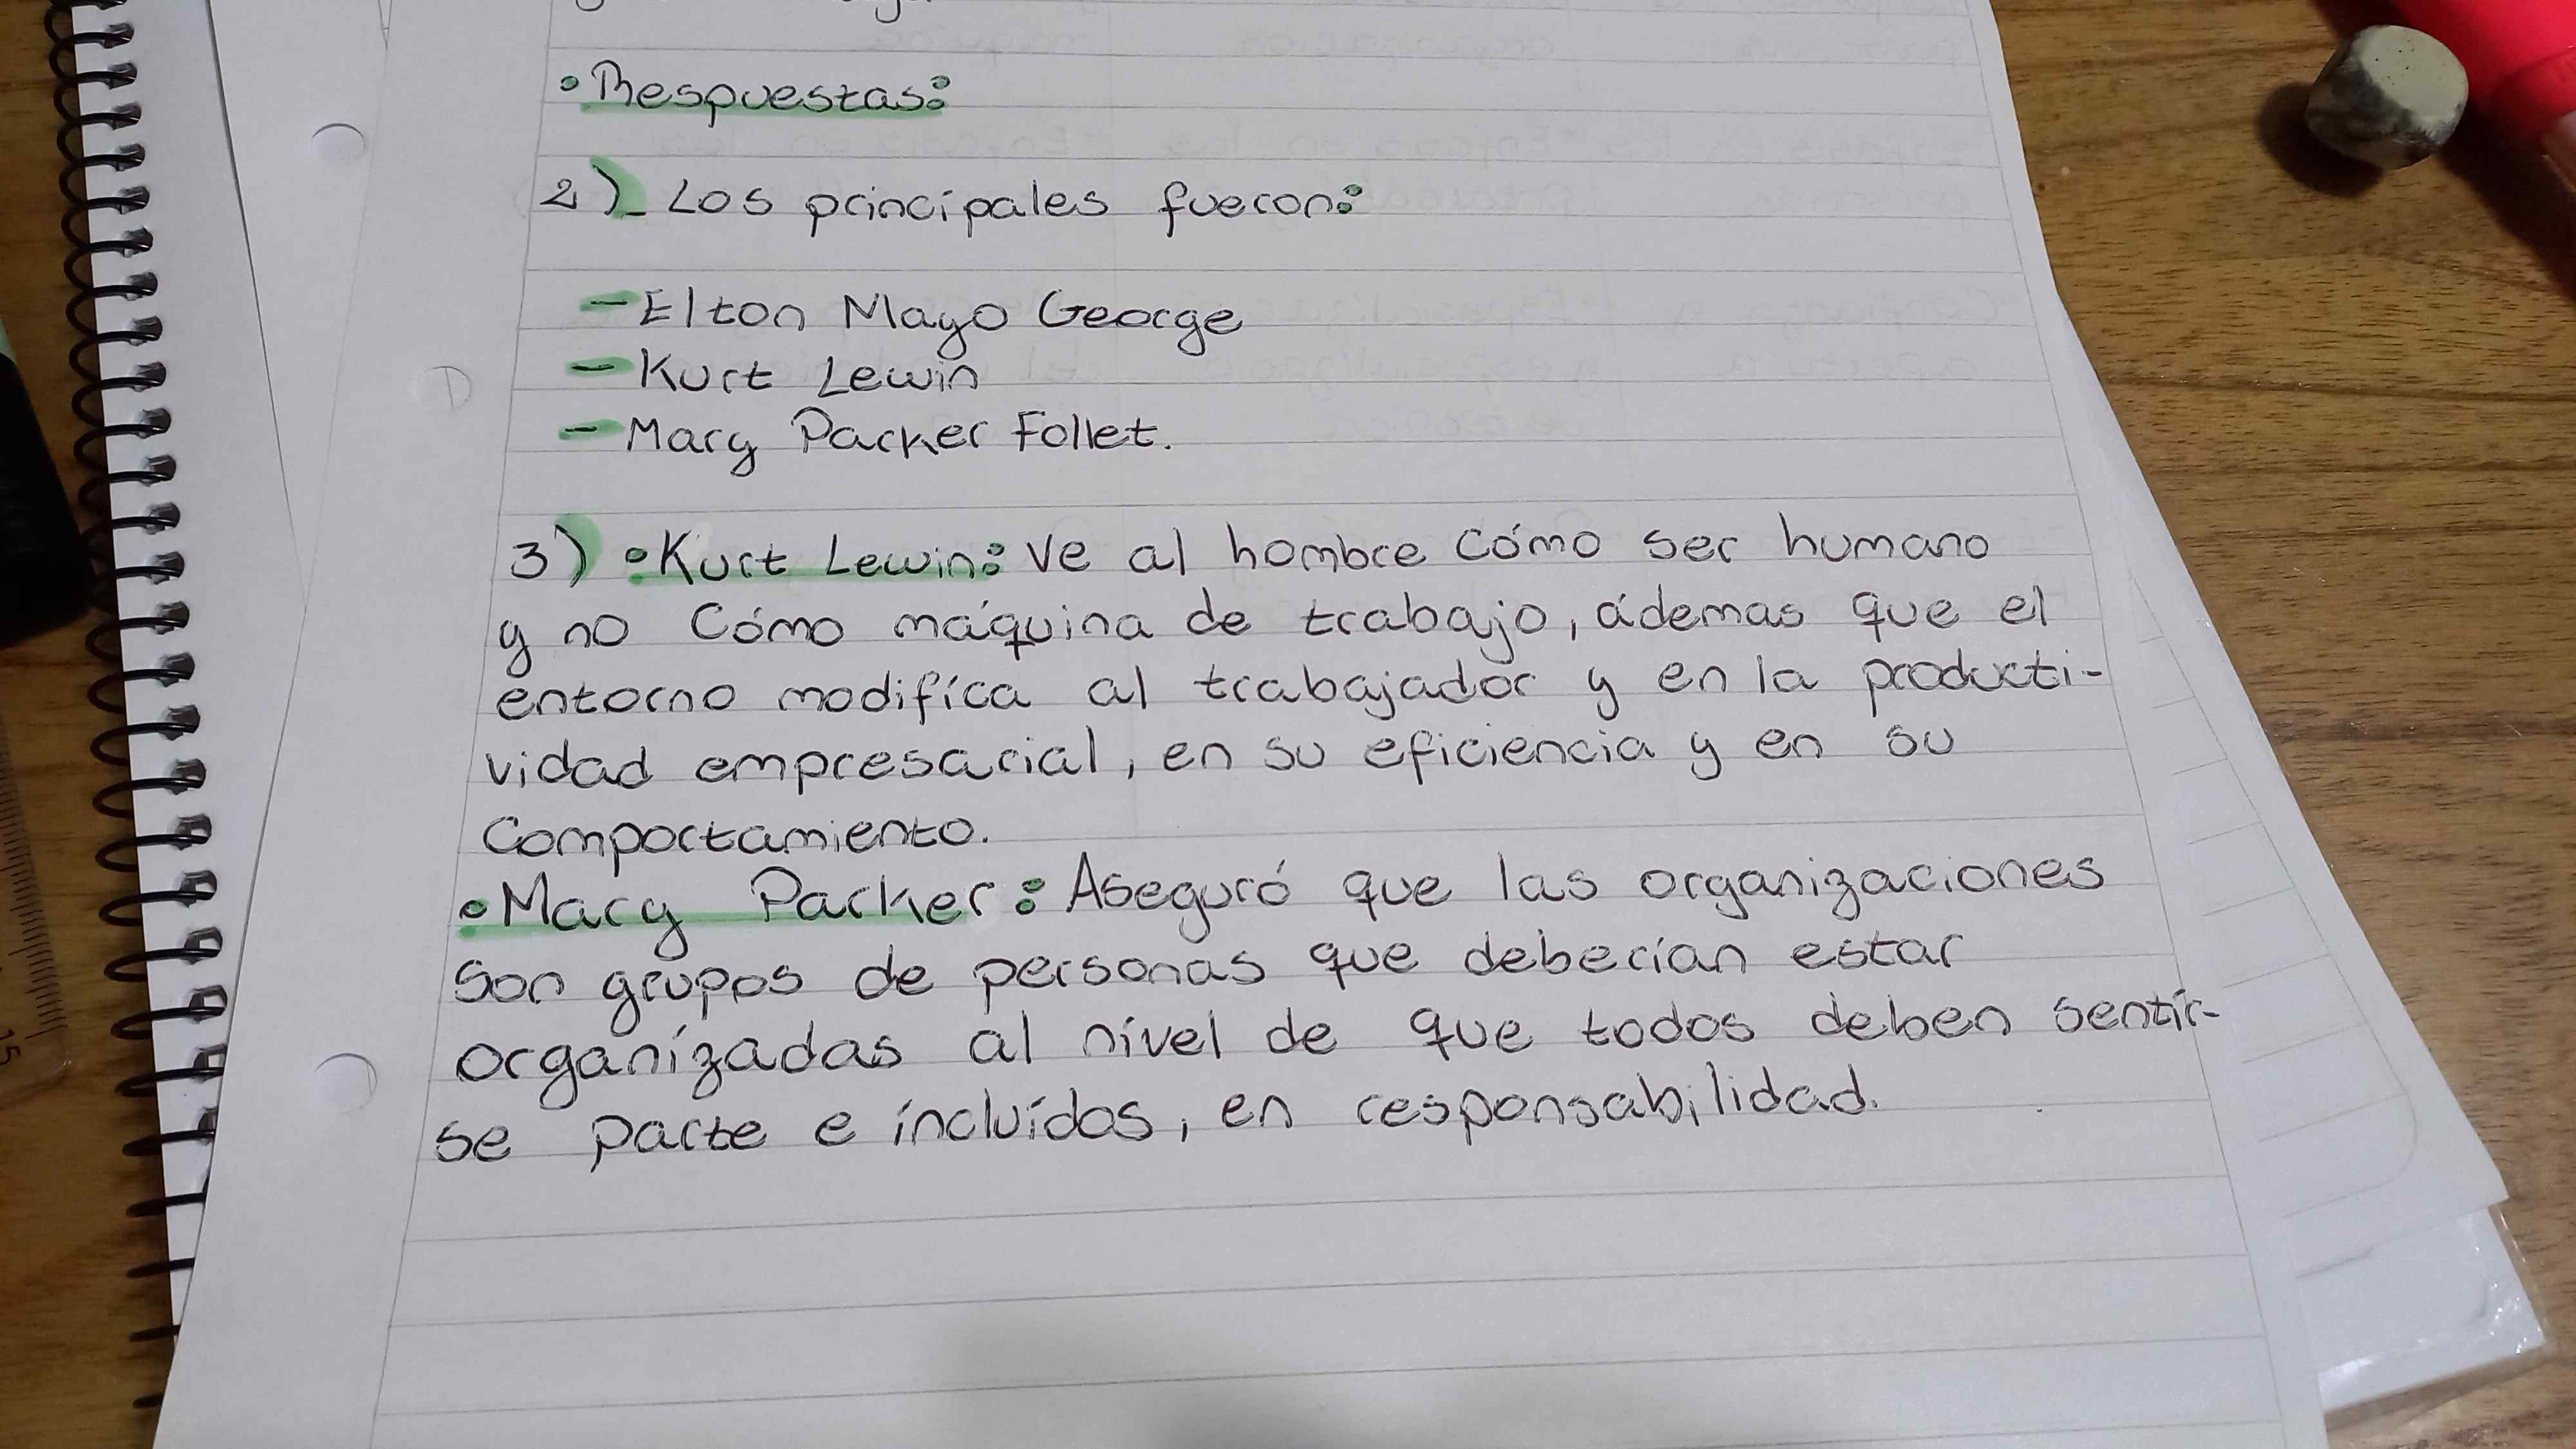 • Respuestas:
2)_ Los principales fueron:
- Elton Mayo George
- Kurt Lewin
- Mary Parker Follet.
3) • Kurt Lewin: Ve al hombre cómo ser humano
y no cómo máquina de trabajo, ádemas que el
entorno modifíca al trabajador y en la producti-
vidad empresarial, en su eficiencia y en su
comportamiento.
• Mary Parker: Aseguró que las organizaciones
son grupos de personas que deberían estar
organízadas al nível de que todos deben sentír-
se parte e incluídos, en responsabilidad.